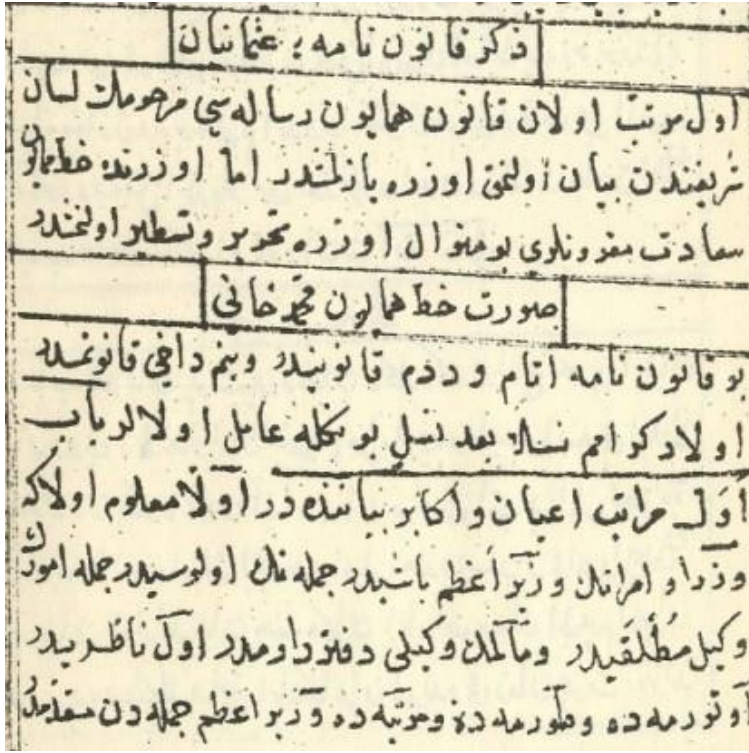 ذكر قانون نامه ٔ عثمانيان
اول مرتب اولان قانون همايون رساله سي مرحومك لسان
شريفندن بيان اولنمق اوزره يازلمشدر اما اوزرنده خط همايون
سعادت مقرونلري بو منوال اوزره تحرير وتسطير اولنمشدر
صورت خط همايون محمد خاني
بو قانون نامه اتام وددم قانونيدر وبنم داخي قانونمدر
اولاد كرامم نسلا بعد نسل بونكله عامل اولالر باب
اول مراتب اعيان واكابر بياننده در اولا معلوم اولاكه
وزرا وامرانك وزير اعظم باشيدر جمله نك اولوسيدر جمله امورك
وكيل مطلقيدر ومالمك وكيلي دفتردارمدر اول ناظريدر
اوتورمه ده وطورمه ده ومرتبه ده وزير اعظم جمله دن مقدمدر